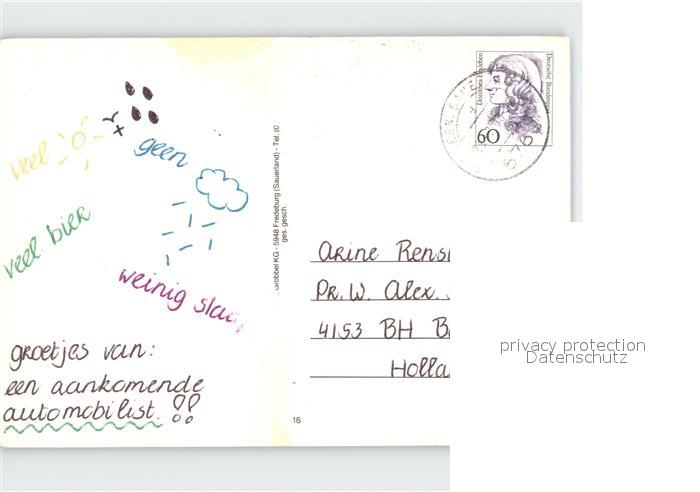 veel
geen
veel bier
weinig slaap
groetjes van:
een aankomende
automobilist. !!
Grobbel KG - 5948 Fredeburg (Sauerland) - Tel. (0
ges. gesch.
16
Deutsche Bundespost
60
Arine Rens
Pr. W. Alex.
4153 BH B
Holla
privacy protection
Datenschutz